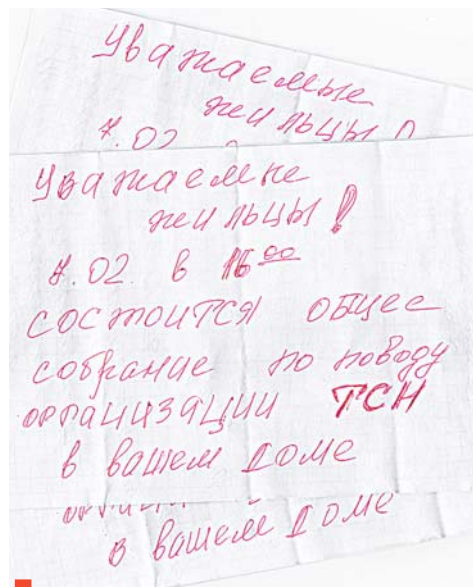 Уважаемые
жильцы
7.02
Уважаемые
жильцы!
7.02. в 16⁰⁰
состоится общее
собрание по поводу
организации ТСН
в вашем доме
в вашем доме